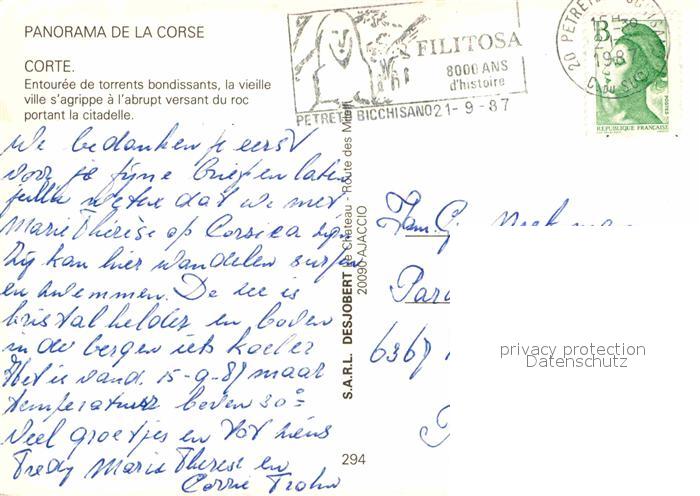 PANORAMA DE LA CORSE
CORTE.
Entourée de torrents bondissants, la vieille
ville s'agrippe à l'abrupt versant du roc
portant la citadelle.
FILITOSA
8000 ANS
d'histoire
PETRETO BICCHISANO 21-9-87
20 PETRETO
1987
C. DU SUD
B
REPUBLIQUE FRANCAISE
We bedanken je eerst
voor je fijne brief en laten
jullie weten dat we met
Marie Thérèse op Corsica zijn
Zij kan hier wandelen surfen
en zwemmen. De zee is
kristalhelder en boven
in de bergen iets koeler
Het is vand. 15-9-87 maar
temperatuur boven 30°
Veel groetjes en tot ziens
Fredy Marie Therese en
Corrie
S.A.R.L. DESJOBERT Le Château - Route des
20090 AJACCIO
294
Fam. G.
Par
6367
privacy protection
Datenschutz